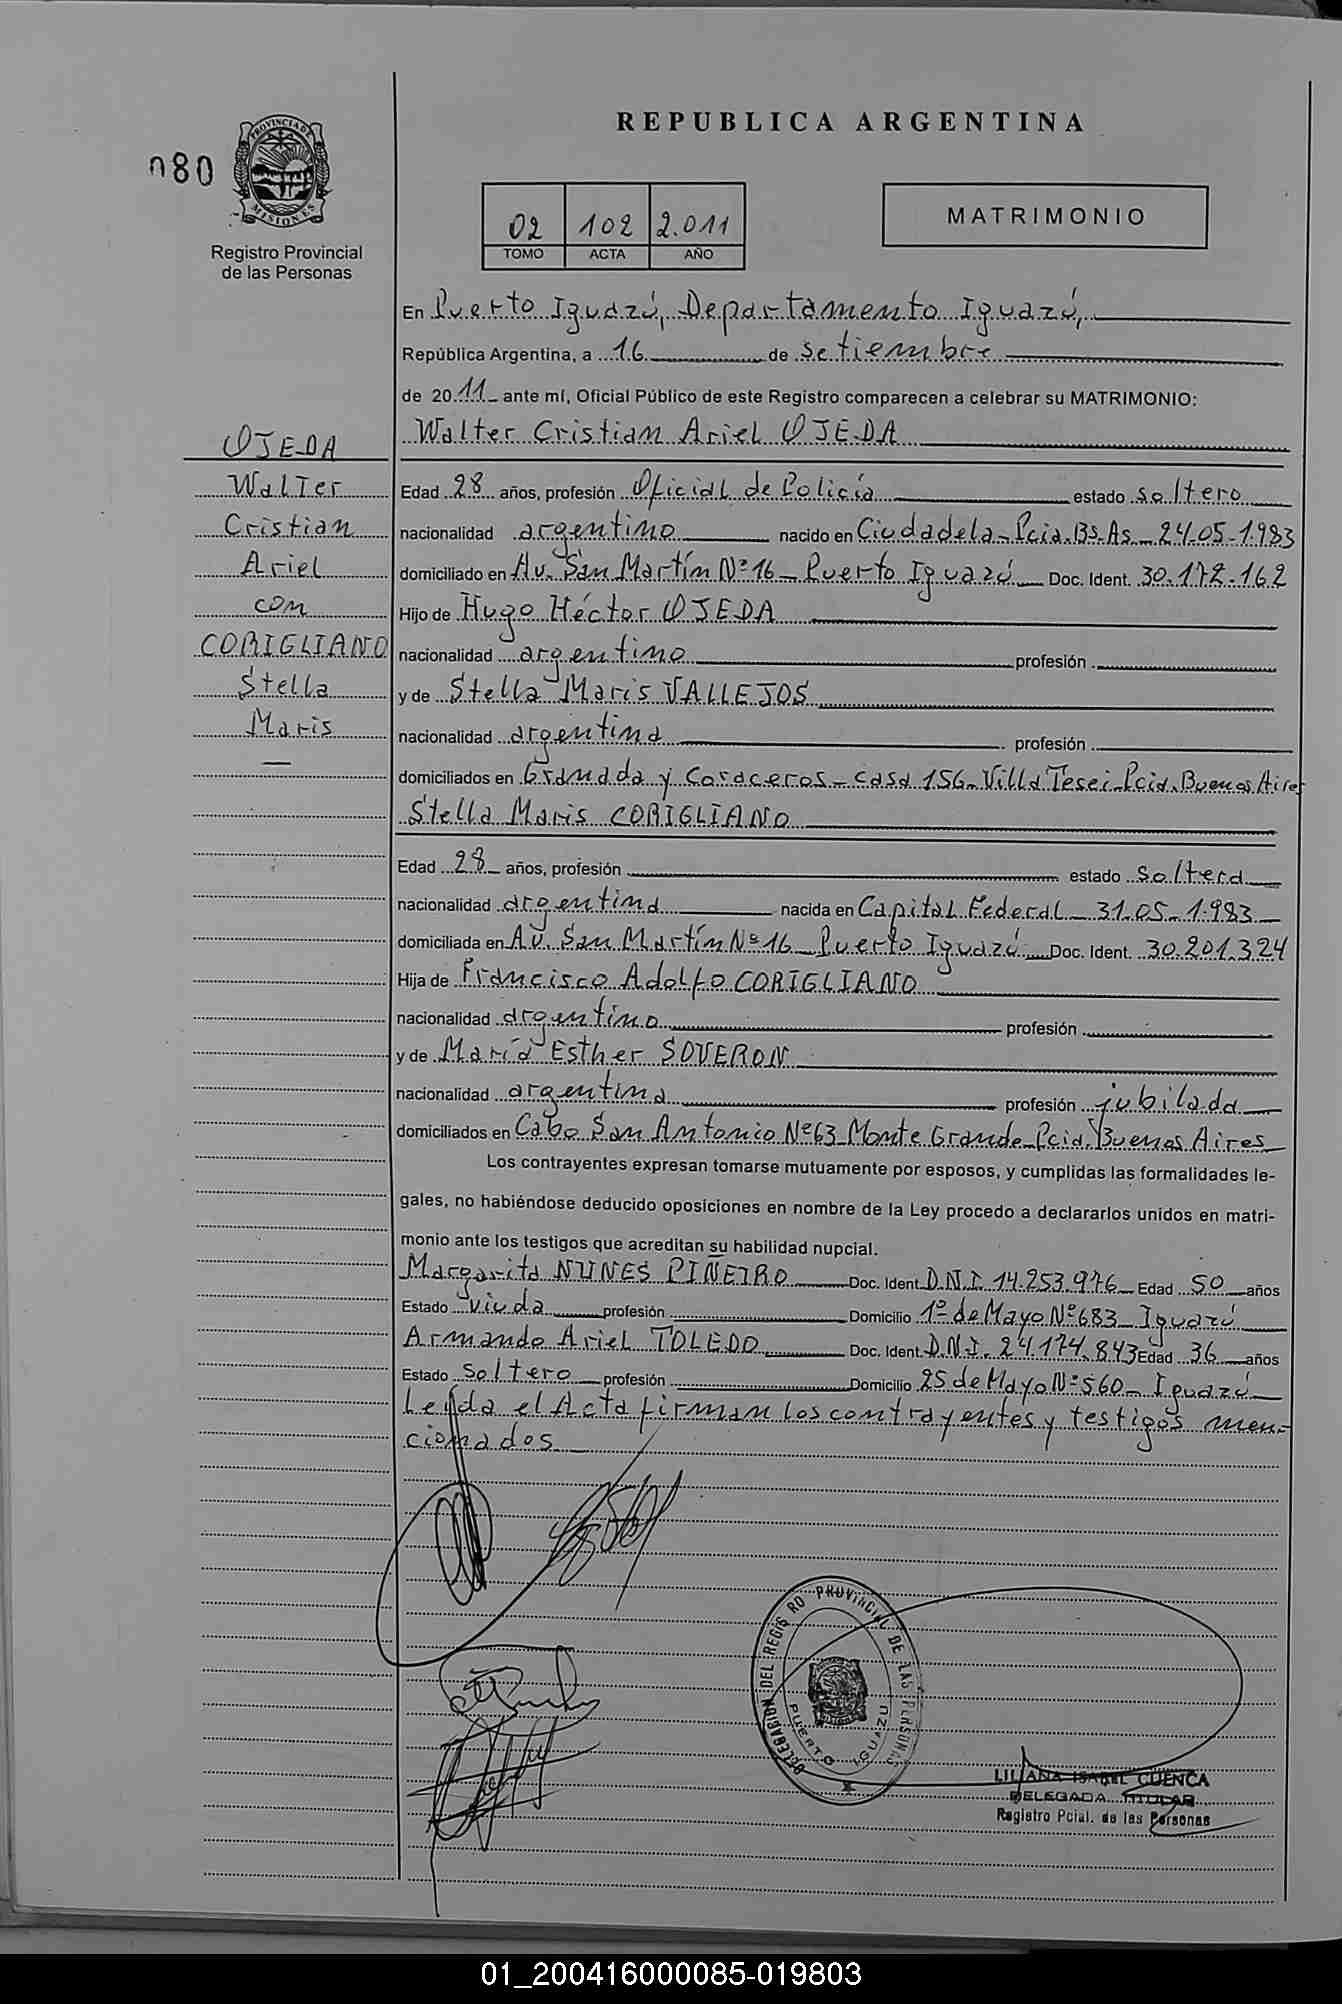 REPUBLICA ARGENTINA
080
PROVINCIA DE
MISIONES
Registro Provincial
de las Personas
02 102 2.011
TOMO ACTA AÑO
MATRIMONIO
En Puerto Iguazú, Departamento Iguazú,
República Argentina, a 16 de setiembre
de 2011 ante mí, Oficial Público de este Registro comparecen a celebrar su MATRIMONIO:
Walter Cristian Ariel OJEDA
OJEDA
Walter
Cristian
Ariel
con
CORIGLIANO
Stella
Maris
Edad 28 años, profesión Oficial de Policía estado soltero
nacionalidad argentino nacido en Ciudadela - Pcia. Bs. As. - 24-05-1.983
domiciliado en Av. San Martín Nº 16 - Puerto Iguazú Doc. Ident. 30.172.162
Hijo de Hugo Héctor OJEDA
nacionalidad argentino profesión
y de Stella Maris VALLEJOS
nacionalidad argentina profesión
domiciliados en Granada y Coraceros - casa 156 - Villa Tesei - Pcia. Buenos Aires
Stella Maris CORIGLIANO
Edad 28 años, profesión estado soltera
nacionalidad argentina nacida en Capital Federal - 31-05-1.983
domiciliada en Av. San Martín Nº 16 Puerto Iguazú Doc. Ident. 30.201.324
Hija de Francisco Adolfo CORIGLIANO
nacionalidad argentino profesión
y de María Esther SOVERON
nacionalidad argentina profesión jubilada
domiciliados en Cabo San Antonio Nº 63 Monte Grande - Pcia. Buenos Aires
Los contrayentes expresan tomarse mutuamente por esposos, y cumplidas las formalidades le-
gales, no habiéndose deducido oposiciones en nombre de la Ley procedo a declararlos unidos en matri-
monio ante los testigos que acreditan su habilidad nupcial.
Margarita NUNES PIÑEIRO Doc. Ident. D.N.I. 14.253.976 Edad 50 años
Estado viuda profesión Domicilio 1º de Mayo Nº 683 Iguazú
Armando Ariel TOLEDO Doc. Ident. D.N.I. 24.174.843 Edad 36 años
Estado soltero profesión Domicilio 25 de Mayo Nº 560 - Iguazú
Leída el Acta firman los contrayentes y testigos men-
cionados
DELEGACION DEL REGISTRO PROVINCIAL DE LAS PERSONAS
PUERTO IGUAZU
LILIANA ISABEL CUENCA
DELEGADA TITULAR
Registro Pcial. de las Personas
01_200416000085-019803